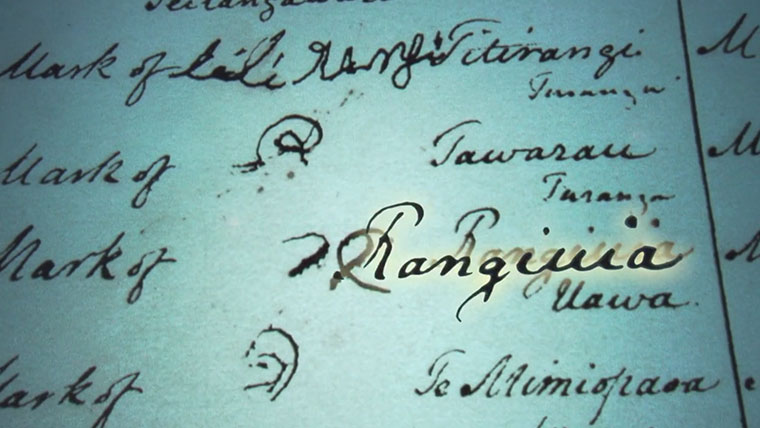 Mark of Titirangi
Turanga
Mark of Tawarau
Turanga
Mark of Rangiuia
Uawa.
Mark of Te Mimiopaoa